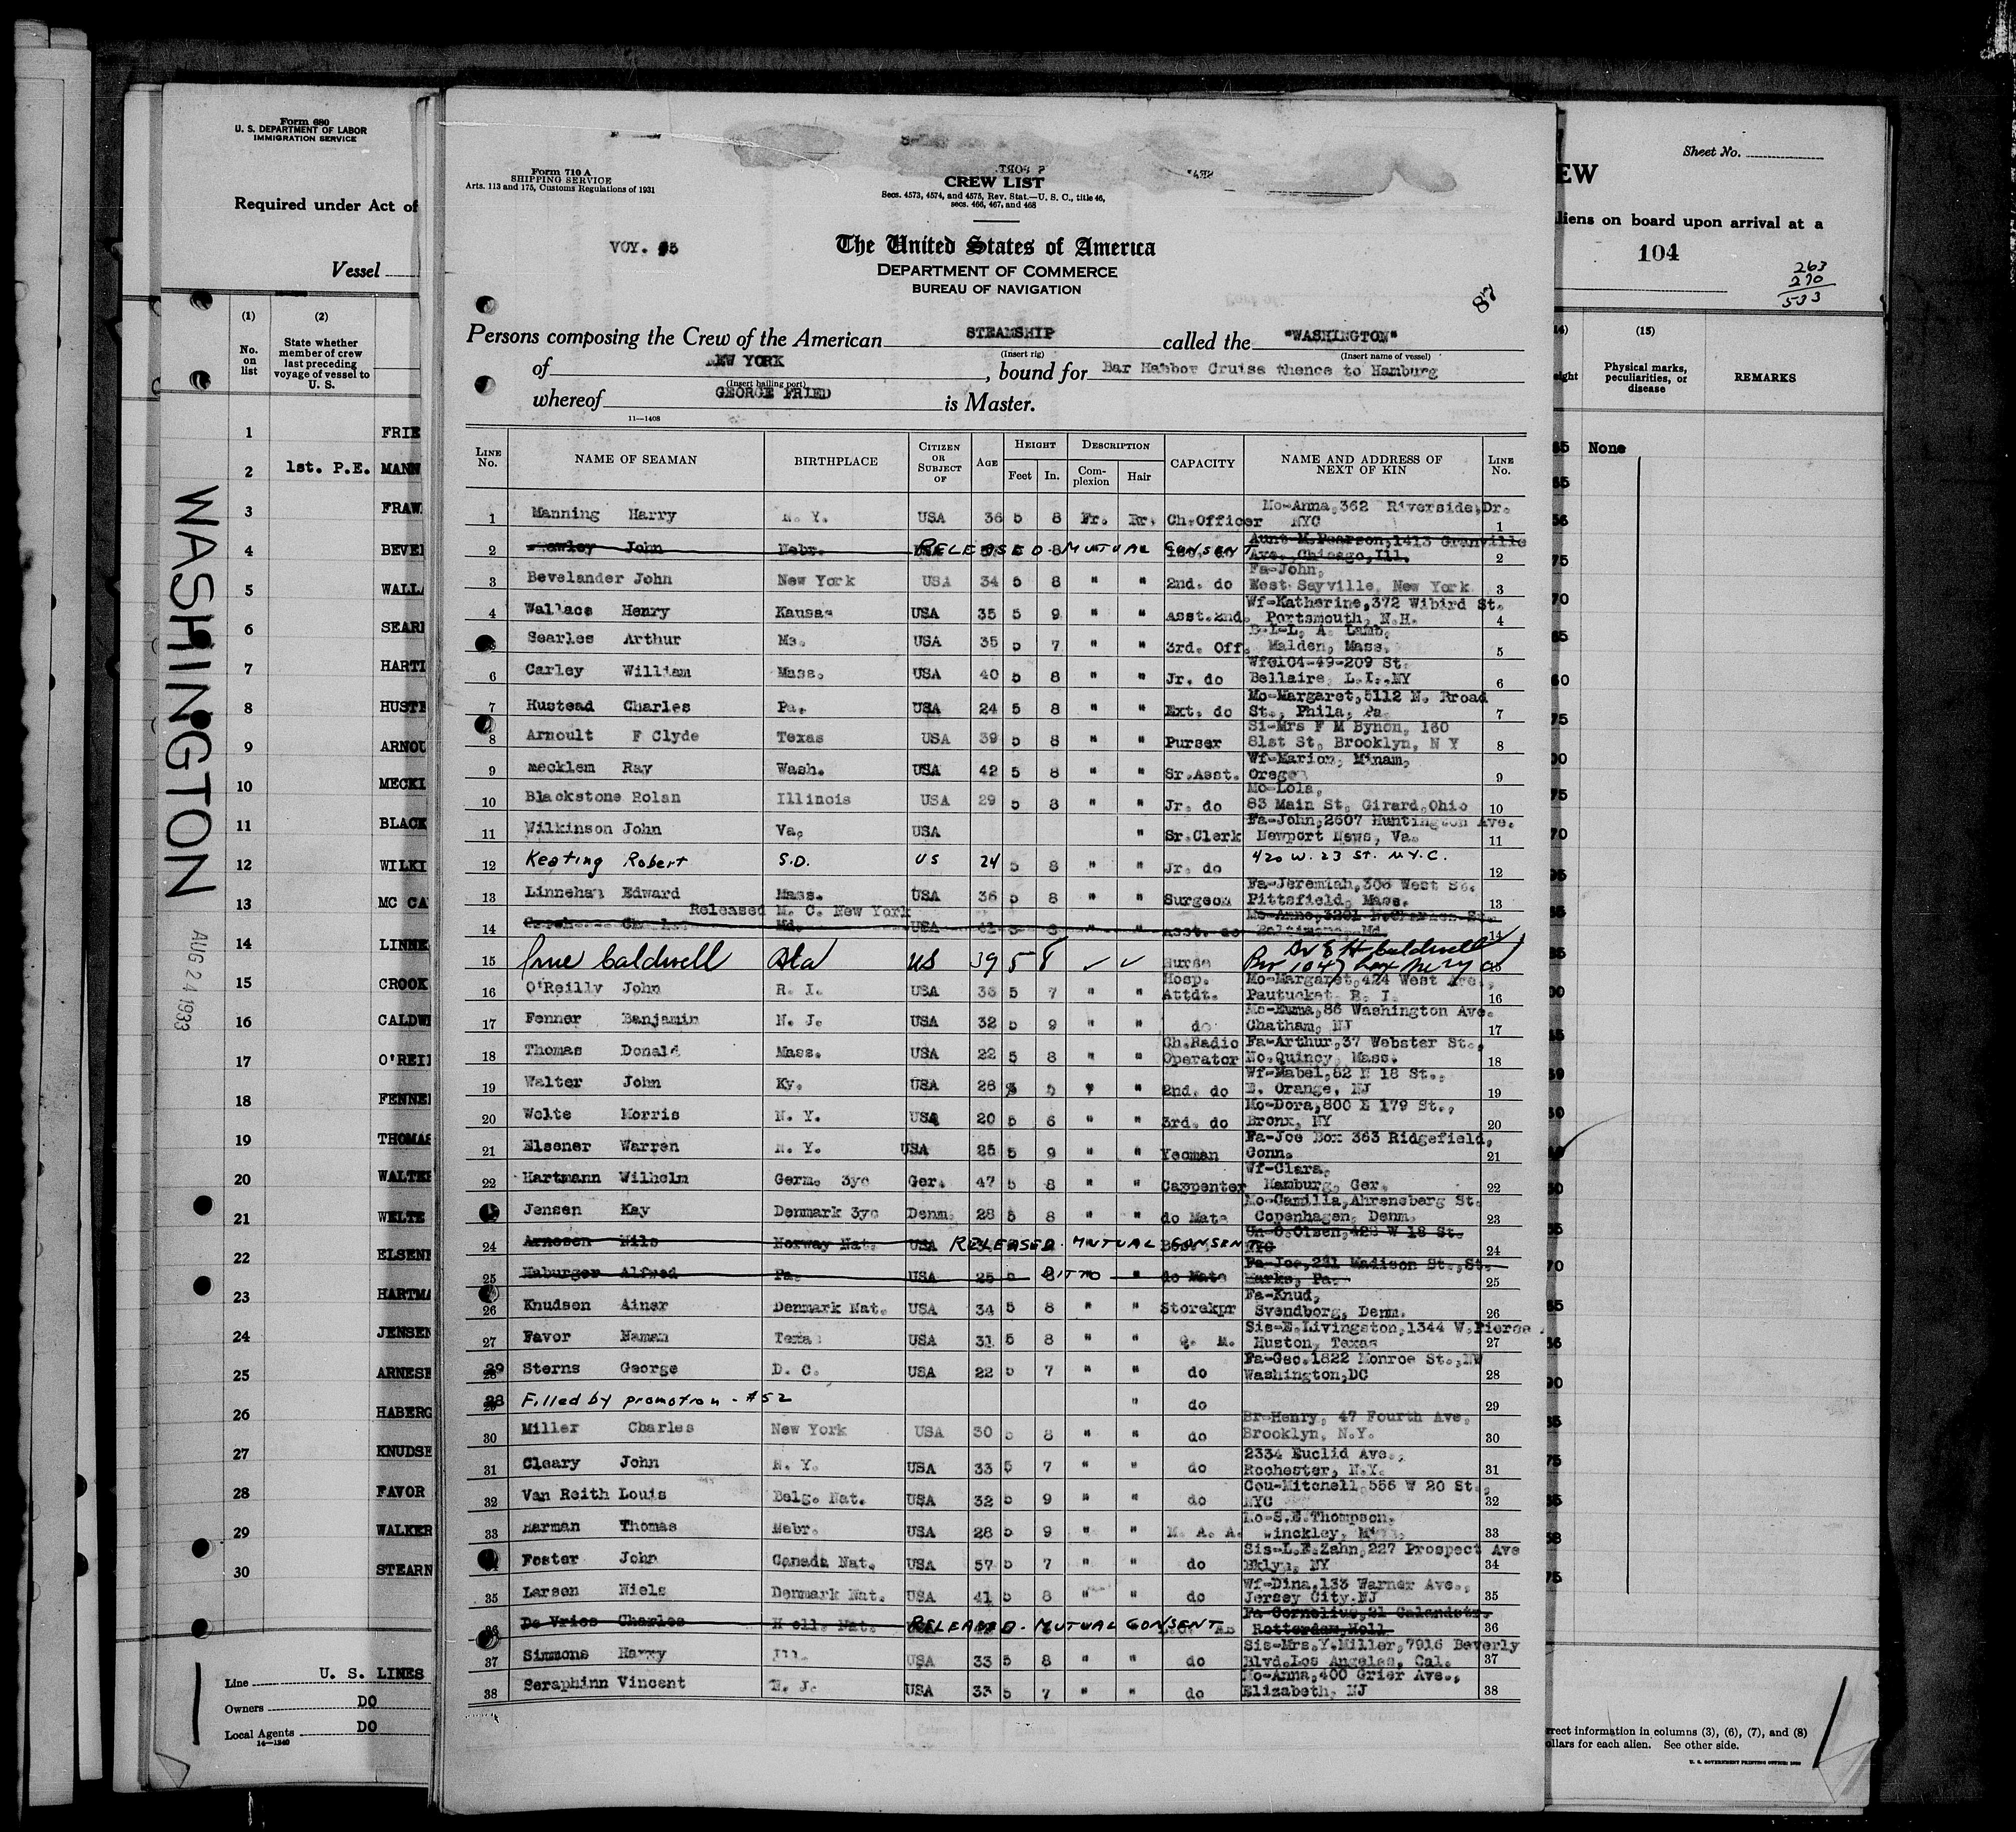 Form 680
U. S. DEPARTMENT OF LABOR
IMMIGRATION SERVICE
Required under Act of
Vessel
(1) (2)
No. on list
State whether member of crew last preceding voyage of vessel to U. S.
1 FRIE
2 1st. P.E. MANN
3 FRAW
4 BEVE
5 WALL
6 SEAR
7 HARTI
8 HUSTE
9 ARNOU
10 MECKI
11 BLACK
12 WILKI
13 MC CA
14 LINNE
15 CROOK
16 CALDWE
17 O'REI
18 FENNE
19 THOMAS
20 WALTER
21 WELTE
22 ELSENE
23 HARTMA
24 JENSEN
25 ARNESE
26 HABERG
27 KNUDSE
28 FAVOR
29 WALKER
30 STEARN
WASHINGTON
AUG 24 1933
Line U. S. LINES
Owners DO
Local Agents DO
14—1240
Form 710 A
SHIPPING SERVICE
Arts. 113 and 175, Customs Regulations of 1931
CREW LIST
Secs. 4573, 4574, and 4575, Rev. Stat.—U. S. C., title 46,
secs. 466, 467, and 468
VOY. #5
The United States of America
DEPARTMENT OF COMMERCE
BUREAU OF NAVIGATION
87
Persons composing the Crew of the American STEAMSHIP called the "WASHINGTON"
(Insert rig) (Insert name of vessel)
of NEW YORK, bound for Bar Habbor Cruise thence to Hamburg
(Insert hailing port)
whereof GEORGE FRIED is Master.
11—1408
LINE No. NAME OF SEAMAN BIRTHPLACE CITIZEN OR SUBJECT OF AGE HEIGHT Feet In. DESCRIPTION Complexion Hair CAPACITY NAME AND ADDRESS OF NEXT OF KIN LINE No.
1 Manning Harry N. Y. USA 36 5 8 Fr. Br. Ch.Officer Mo-Anna,362 Riverside,Dr. NYC 1
2 John Nebr. RELEASED. MUTUAL CONSENT Aunt M.Pearson,1413 Granville Ave., Chicago,Ill. 2
3 Bevelander John New York USA 34 5 8 " " 2nd. do Fa-John, West Sayville, New York 3
4 Wallace Henry Kansas USA 35 5 9 " " Asst.2nd. Wf-Katherine,372 Wibird St. Portsmouth, N.H. 4
5 Searles Arthur Ma. USA 35 5 7 " " 3rd. Off. B-I-L, A. Lamb, Malden, Mass. 5
6 Carley William Mass. USA 40 5 8 " " Jr. do Wf@104-49-209 St. Bellaire, L.I.,NY 6
7 Hustead Charles Pa. USA 24 5 8 " " Ext. do Mo-Margaret,5112 N. Broad St., Phila, Pa 7
8 Arnoult F Clyde Texas USA 39 5 8 " " Purser Si-Mrs F M Bynon, 160 81st St, Brooklyn, N Y 8
9 mecklem Ray Wash. USA 42 5 8 " " Sr.Asst. Wf-Marion, Minam, Oregon 9
10 Blackstone Rolan Illinois USA 29 5 8 " " Jr. do Mo-Lola, 83 Main St, Girard,Ohio 10
11 Wilkinson John Va. USA " Sr.Clerk Fa-John,2607 Huntington Ave. Newport News, Va. 11
12 Keating Robert S.D. US 24 5 8 " " Jr. do 420 W. 23 St. N.Y.C. 12
13 Linnehan Edward Mass. USA 36 5 8 " " Surgeon Fa-Jeremiah,306 West St. Pittsfield, Mass. 13
Released M. C. New York
14 Md. USA 41 5 8 Asst. do Mo-Anne,3201 N.Charles St. Baltimore, Md. 14
15 Caldwell US 39 5 8 ✓ ✓ Nurse Dr E H Caldwell 15
16 O'Reilly John R. I. USA 33 5 7 " " Hosp. Attdt. Mo-Margaret,424 West Ave., Pautucket R. I. 16
17 Fenner Benjamin N. J. USA 32 5 9 " " do Mo-Emma,86 Washington Ave. Chatham, NJ 17
18 Thomas Donald Mass. USA 22 5 8 " " Ch.Radio Operator Fa-Arthur,37 Webster St., No.Quincy, Mass. 18
19 Walter John Ky. USA 26 5 5 " " 2nd. do Wf-Mabel,82 N 18 St., E. Orange, NJ 19
20 Welte Morris N. Y. USA 20 5 6 " " 3rd. do Mo-Dora,800 E 179 St., Bronx, NY 20
21 Elsener Warren N. Y. USA 25 5 9 " " Yeoman Fa-Joe Box 363 Ridgefield, Conn. 21
22 Hartmann Wilhelm Germ. 3yc Ger. 47 5 8 " " Carpenter Wf-Clara, Hamburg, Ger. 22
23 Jensen Kay Denmark 3yc Denm. 28 5 8 " " do Mate Mo-Camilla,Ahrensberg St. Copenhagen, Denm. 23
24 Arnesen Nils Norway Nat. USA RELEASED. MUTUAL CONSENT Un-O.Olsen,422 W 18 St. NYC 24
25 Haburger Alfred Pa. USA 25 5 8 DITTO do Mate Fa-Joe,221 Madison St.,St. Marks, Pa. 25
26 Knudsen Ainer Denmark Nat. USA 34 5 8 " " Storekpr Fa-Knud, Svendborg, Denm. 26
27 Favor Haman Texas USA 31 5 8 " " Q. M. Sis-E.Livingston,1344 W.Pierce Huston, Texas 27
29 Sterns George D. C. USA 22 5 7 " " do Fa-Geo.1822 Monroe St.,NW Washington,DC 28
28 Filled by promotion - #52 " do 29
30 Miller Charles New York USA 30 5 8 " " do Br-Henry, 47 Fourth Ave, Brooklyn, N.Y. 30
31 Cleary John N. Y. USA 33 5 7 " " do 2334 Euclid Ave., Rochester, N.Y. 31
32 Van Reith Louis Belg. Nat. USA 32 5 9 " " do Cou-Mitchell,556 W 20 St., NYC 32
33 Harman Thomas Nebr. USA 28 5 9 " " M. A. A. Mo-S.E.Thompson, 33
34 Foster John Canada Nat. USA 57 5 7 " " do Sis-L.E.Zahn,227 Prospect Ave Bklyn, NY 34
35 Larsen Niels Denmark Nat. USA 41 5 8 " " do Wf-Dina,133 Warner Ave., Jersey City,NJ 35
36 De Vries Charles Holl. Nat. RELEASED. MUTUAL CONSENT Fa-Cornelius,21 Calandstr. Rotterdam,Holl 36
37 Simmons Harry Ill. USA 33 5 8 " " do Sis-Mrs.Y.Miller,7916 Beverly Blvd.Los Angeles, Cal. 37
38 Seraphinn Vincent N. J. USA 33 5 7 " " do Mo-Anna,400 Grier Ave., Elizabeth, NJ 38
Sheet No.
EW
liens on board upon arrival at a
104
263
270
533
(15)
Physical marks, peculiarities, or disease
REMARKS
None
rrect information in columns (3), (6), (7), and (8)
ollars for each alien. See other side.
U. S. GOVERNMENT PRINTING OFFICE